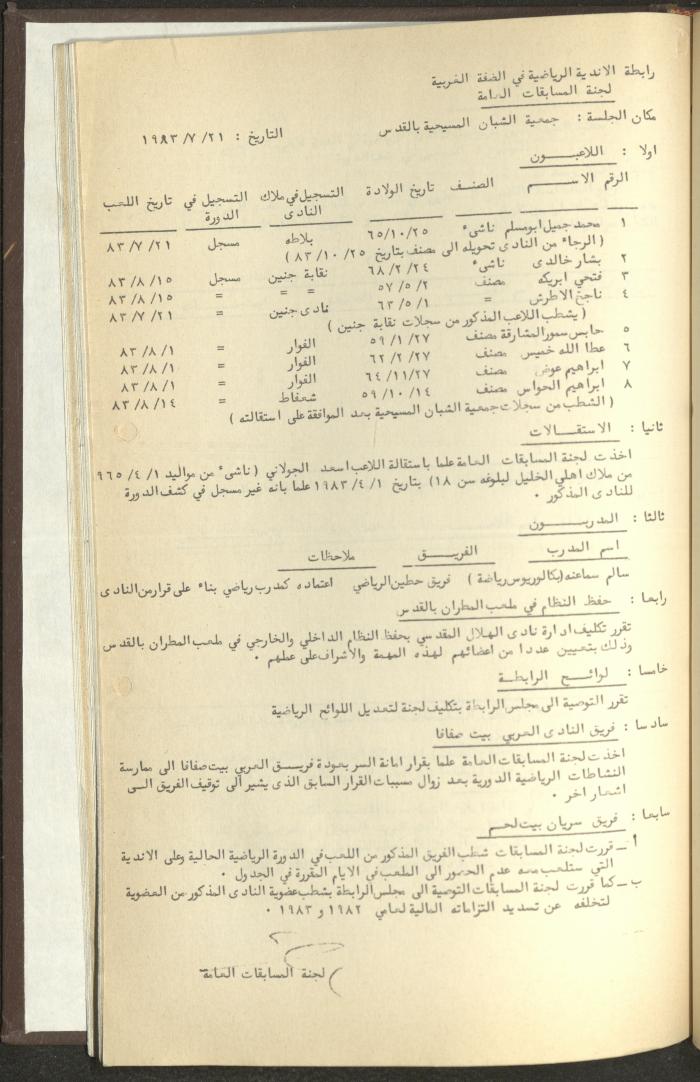 رابطة الاندية الرياضية في الضفة الغربية
لجنة المسابقات العامة
مكان الجلسة : جمعية الشبان المسيحية بالقدس التاريخ : ٢١/ ٧/ ١٩٨٣
اولا : اللاعبـــون
الرقم الاســـم الصنف تاريخ الولادة التسجيل في ملاك النادى التسجيل في الدورة تاريخ اللعب
١ محمد جميل ابو مسلم ناشىء ٢٥/ ١٠/ ٦٥ بلاطه مسجل ٢١/ ٧/ ٨٣
( الرجاء من النادى تحويله الى مصنف بتاريخ ٢٥/ ١٠/ ٨٣ )
٢ بشار خالدى ناشىء ٢٤/ ٢/ ٦٨ نقابة جنين مسجل ١٥/ ٨/ ٨٣
٣ فتحي ابريكه مصنف ٢/ ٥/ ٥٧ = = = ١٥/ ٨/ ٨٣
٤ ناجح الاطرش = ١/ ٥/ ٦٣ نادى جنين = ٢١/ ٧/ ٨٣
( يشطب اللاعب المذكور من سجلات نقابة جنين )
٥ حابس سمور المشارقة مصنف ٢٧/ ١/ ٥٩ الفوار = ١/ ٨/ ٨٣
٦ عطا الله خميس مصنف ٢٧/ ٢/ ٦٢ الفوار = ١/ ٨/ ٨٣
٧ ابراهيم عوض مصنف ٢٧/ ١١/ ٦٤ الفوار = ١/ ٨/ ٨٣
٨ ابراهيم الحواس مصنف ١٤/ ١٠/ ٥٩ شعفاط = ١٤/ ٨/ ٨٣
( الشطب من سجلات جمعية الشبان المسيحية بعد الموافقة على استقالته )
ثانيا : الاستقــالات
اخذت لجنة المسابقات العامة علما باستقالة اللاعب اسعد الجولاني ( ناشىء من مواليد ١/ ٤/ ٩٦٥
من ملاك اهلي الخليل لبلوغه سن ١٨) بتاريخ ١/ ٤/ ١٩٨٣ علما بانه غير مسجل في كشف الدورة
للنادى المذكور .
ثالثا : المدربـــون
اسم المدرب الفريـــق ملاحظات
سالم سماعنه (بكالوريوس رياضة ) فريق حطين الرياضي اعتماده كمدرب رياضي بناء على قرار من النادى
رابعا : حفظ النظام في ملعب المطران بالقدس
تقرر تكليف ادارة نادى الهلال المقدسي بحفظ النظام الداخلي والخارجي في ملعب المطران بالقدس
وذلك بتعيين عددا من اعضائهم لهذه المهمة والاشراف على عملهم .
خامسا : لوائــح الرابطــة
تقرر التوصية الى مجلس الرابطة بتكليف لجنة لتعديل اللوائح الرياضية
سادسا : فريق النادى العربي بيت صفافا
اخذت لجنة المسابقات العامة علما بقرار امانة السر بعودة فريـــق العربي بيت صفافا الى ممارسة
النشاطات الرياضية الدورية بعد زوال مسببات القرار السابق الذى يشير الى توقيف الفريق الــى
اشعار اخر .
سابعا : فريق سريان بيت لحــم
أ ــ قررت لجنة المسابقات شطب الفريق المذكور من اللعب في الدورة الرياضية الحالية وعلى الاندية
التي ستلعب معه عدم الحضور الى الملعب في الايام المقررة في الجدول .
ب ــ كما قررت لجنة المسابقات التوصية الى مجلس الرابطة بشطب عضوية النادى المذكور من العضوية
لتخلفه عن تسديد التزاماته المالية لعامي ١٩٨٢ و ١٩٨٣ .
لجنة المسابقات العامة